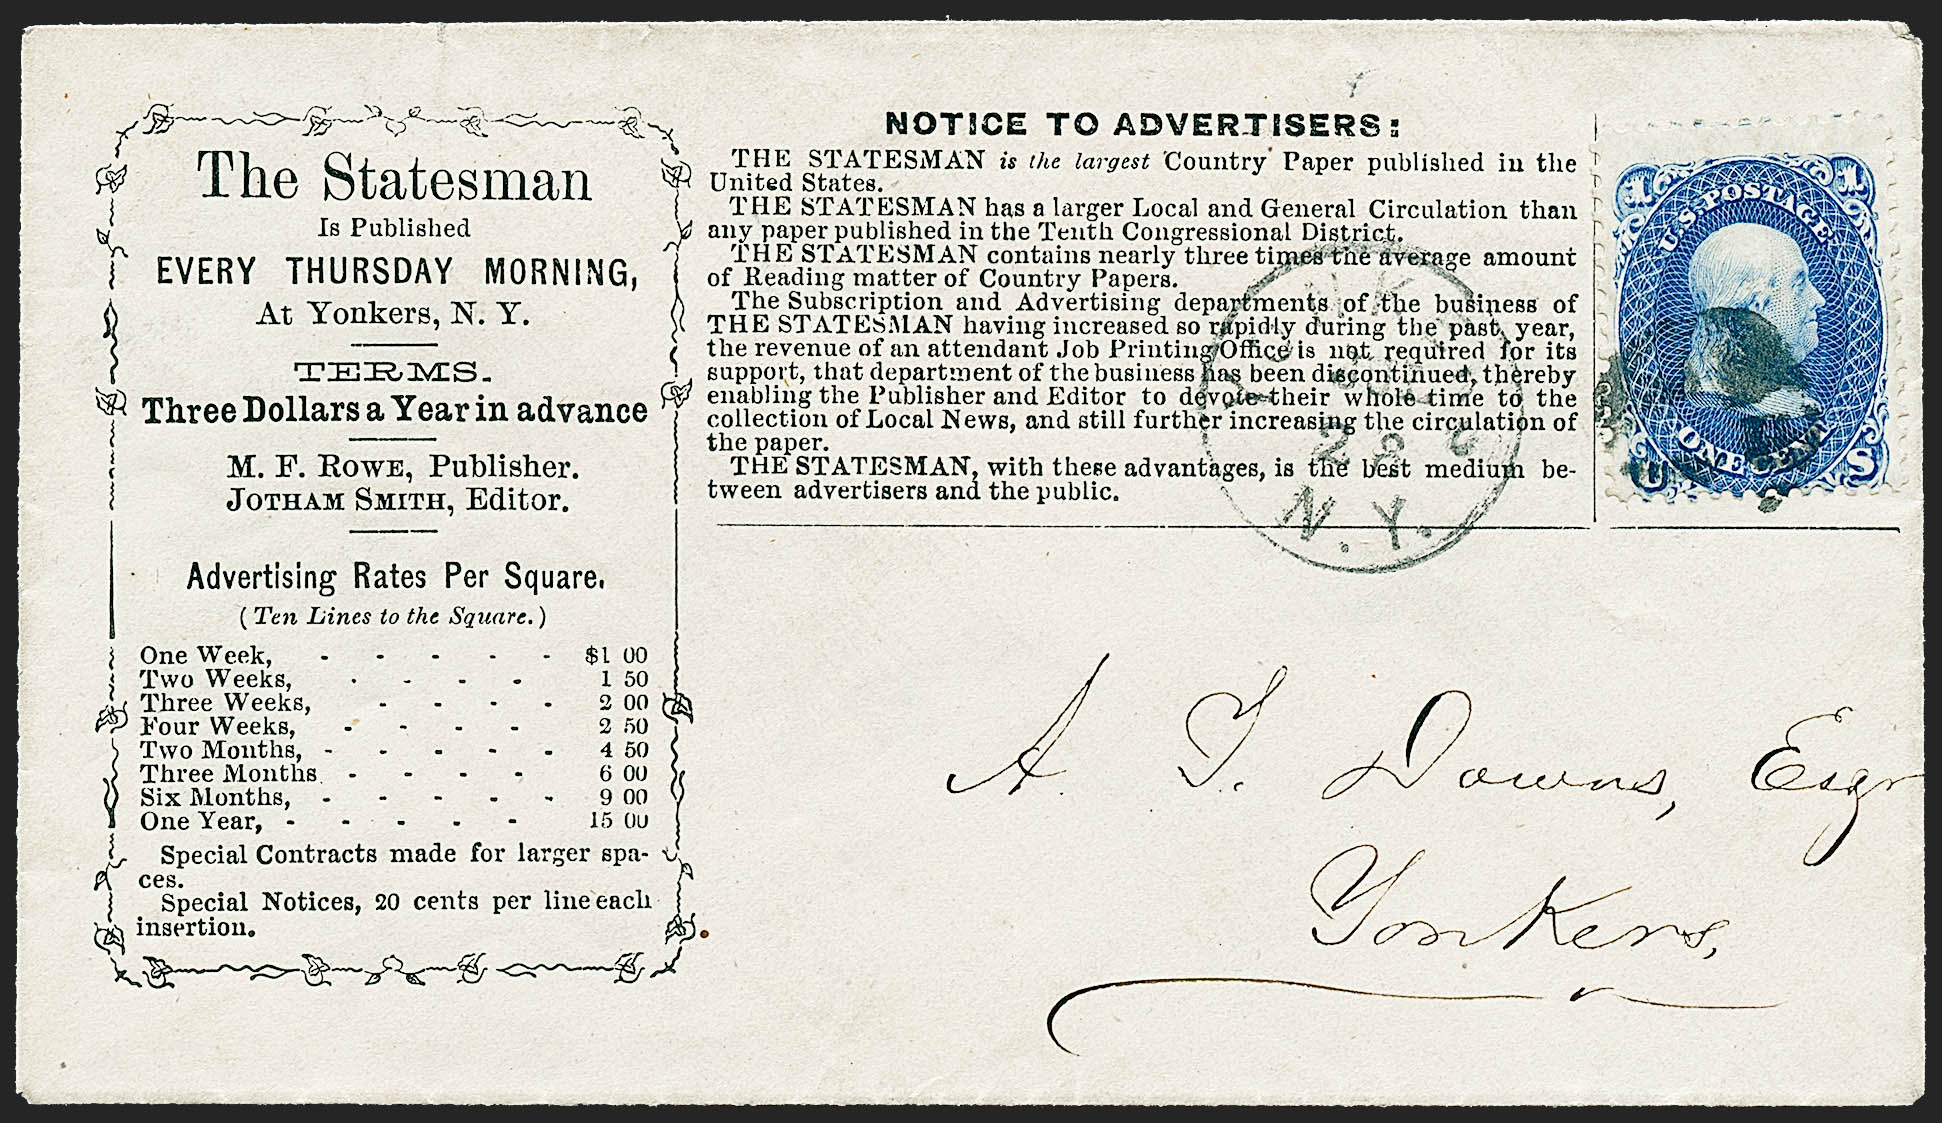 The Statesman
Is Published
EVERY THURSDAY MORNING,
At Yonkers, N. Y.
TERMS.
Three Dollars a Year in advance
M. F. ROWE, Publisher.
JOTHAM SMITH, Editor.
Advertising Rates Per Square.
(Ten Lines to the Square.)
One Week, - - - - - $1 00
Two Weeks, - - - - 1 50
Three Weeks, - - - - 2 00
Four Weeks, - - - - 2 50
Two Months, - - - - - 4 50
Three Months - - - - 6 00
Six Months, - - - - - 9 00
One Year, - - - - - 15 00
Special Contracts made for larger spa-
ces.
Special Notices, 20 cents per line each
insertion.
NOTICE TO ADVERTISERS:
THE STATESMAN is the largest Country Paper published in the
United States.
THE STATESMAN has a larger Local and General Circulation than
any paper published in the Tenth Congressional District.
THE STATESMAN contains nearly three times the average amount
of Reading matter of Country Papers.
The Subscription and Advertising departments of the business of
THE STATESMAN having increased so rapidly during the past year,
the revenue of an attendant Job Printing Office is not required for its
support, that department of the business has been discontinued, thereby
enabling the Publisher and Editor to devote their whole time to the
collection of Local News, and still further increasing the circulation of
the paper.
THE STATESMAN, with these advantages, is the best medium be-
tween advertisers and the public.
28
N. Y.
1 1
U.S. POSTAGE
ONE CENT
U S
A. J. Downs, Esqr
Yonkers,